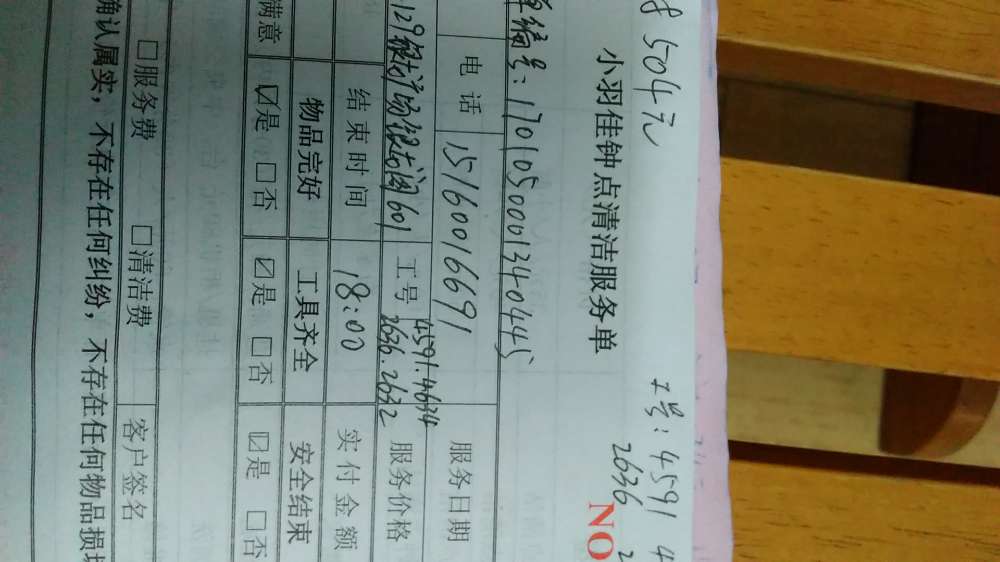 504元 工号：4591
2636
小羽佳钟点清洁服务单 NO
单编号：1701050001340445
电话 15160016691 服务日期
129银龙广场银龙阁601 工号 4591.4634 2636.2632 服务价格
结束时间 18:00 实付金额
物品完好 工具齐全 安全结束
满意 ☑是 □否 ☑是 □否 ☑是 □否
□服务费 □清洁费 客户签名
确认属实，不存在任何纠纷，不存在任何物品损